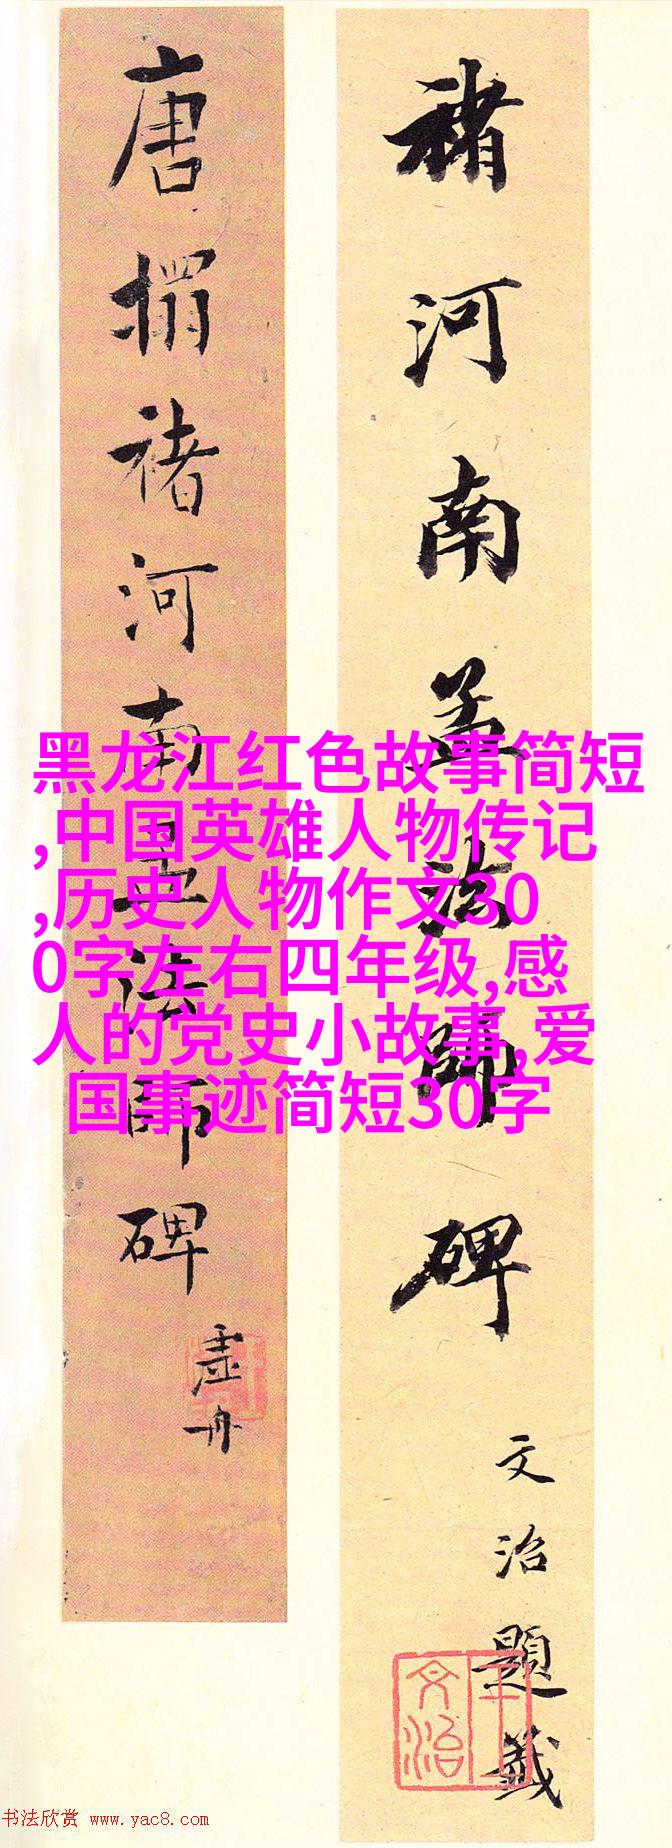 褚河南孟法師碑
文治題籤
文治
王
唐搨褚河南孟法師碑
虛舟
黑龙江红色故事简短
,中国英雄人物传记
,历史人物作文30
0字左右四年级,感
人的党史小故事,爱
国事迹简短30字
书法欣赏 www.yac8.com